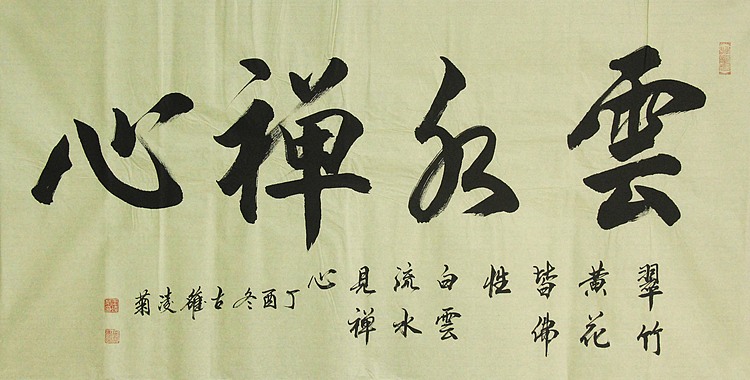 雲水禪心
翠竹
黄花
皆佛
性
白雲
流水
見禅
心
丁酉冬古雄凌菊